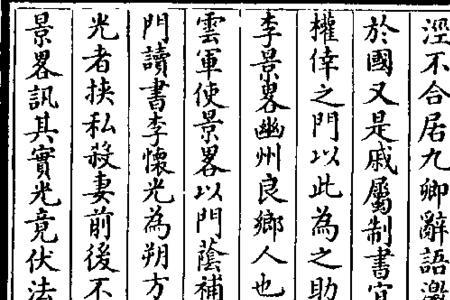 涇不合居九卿辭語激
於國又是戚屬制書宜
權倖之門以此為之助
李景畧幽州良鄉人也
雲軍使景畧以門蔭補
門讀書李懷光為朔方
光者挾私殺妻前後不
景畧訊其實光竟伏法